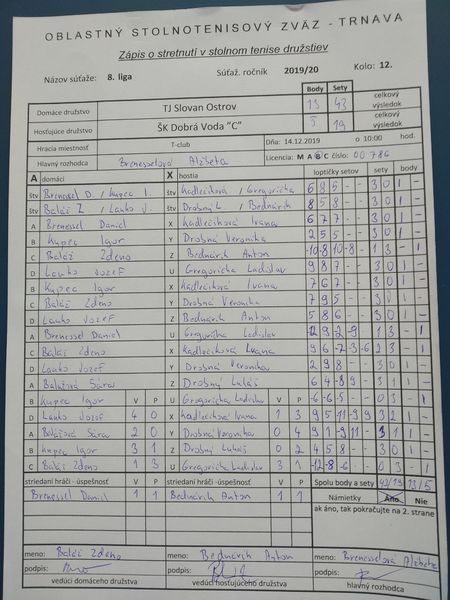 OBLASTNÝ STOLNOTENISOVÝ ZVÄZ - TRNAVA
Zápis o stretnutí v stolnom tenise družstiev
Názov súťaže: 8. liga Súťaž. ročník 2019/20 Kolo: 12.
Body Sety celkový
Domáce družstvo TJ Slovan Ostrov 13 43 výsledok
Hosťujúce družstvo ŠK Dobrá Voda "C" 5 19 celkový výsledok
Hracia miestnosť T-club Dňa: 14.12.2019 o 10:00 hod.
Hlavný rozhodca Brenesselová Alžbeta Licencia: M A B C číslo: 00786
A domáci X hostia loptičky setov sety body
štv Brenessel D. / Kupec I. štv Kadlečíková / Gregorička 6 9 5 - - 3 0 1 -
štv Baláž Z. / Lauko J. štv Drobný L. / Bednárik 8 5 8 - - 3 0 1 -
A Brenessel Daniel X Kadlečíková Ivana 6 7 7 - - 3 0 1 -
B Kupec Igor Y Drobná Veronika 2 5 5 - - 3 0 1 -
C Baláž Zdeno Z Bednárik Anton -10 8 -10 -8 - 1 3 - 1
D Lauko Jozef U Gregorička Ladislav 9 8 7 - - 3 0 1 -
B Kupec Igor X Kadlečíková Ivana 7 6 7 - - 3 0 1 -
C Baláž Zdeno Y Drobná Veronika 7 9 5 - - 3 0 1 -
D Lauko Jozef Z Bednárik Anton 5 8 6 - - 3 0 1 -
A Brenessel Daniel U Gregorička Ladislav 1 3 - 1
C Baláž Zdeno X Kadlečíková Ivana 9 6 -7 -3 -6 2 3 - 1
D Lauko Jozef Y Drobná Veronika 2 9 8 - - 3 0 1 -
A Balážová Sára Z Drobný Lukáš 3 1 1 -
B Kupec Igor U Gregorička Ladislav -6 -6 -5 - - 0 3 - 1
D Lauko Jozef 4 0 X Kadlečíková Ivana 1 3 9 5 -11 -9 9 3 2 1 -
A Balážová Sára 2 0 Y Drobná Veronika 0 4 9 1 -9 11 - 3 1 1 -
B Kupec Igor 3 1 Z Drobný Lukáš 0 2 4 5 8 - - 3 0 1 -
C Baláž Zdeno 1 3 U Gregorička Ladislav 3 1 -12 -8 -6 - - 0 3 - 1
striedaní hráči - úspešnosť V P striedaní hráči - úspešnosť V P Spolu body a sety 43/19 13/5
Brenessel Daniel 1 1 Bednárik Anton 1 1 Námietky Áno Nie
ak áno, tak pokračujte na 2. strane
meno: Baláž Zdeno meno: Bednárik Anton meno: Brenesselová Alžbeta
podpis: podpis: podpis:
vedúci domáceho družstva vedúci hosťujúceho družstva hlavný rozhodca